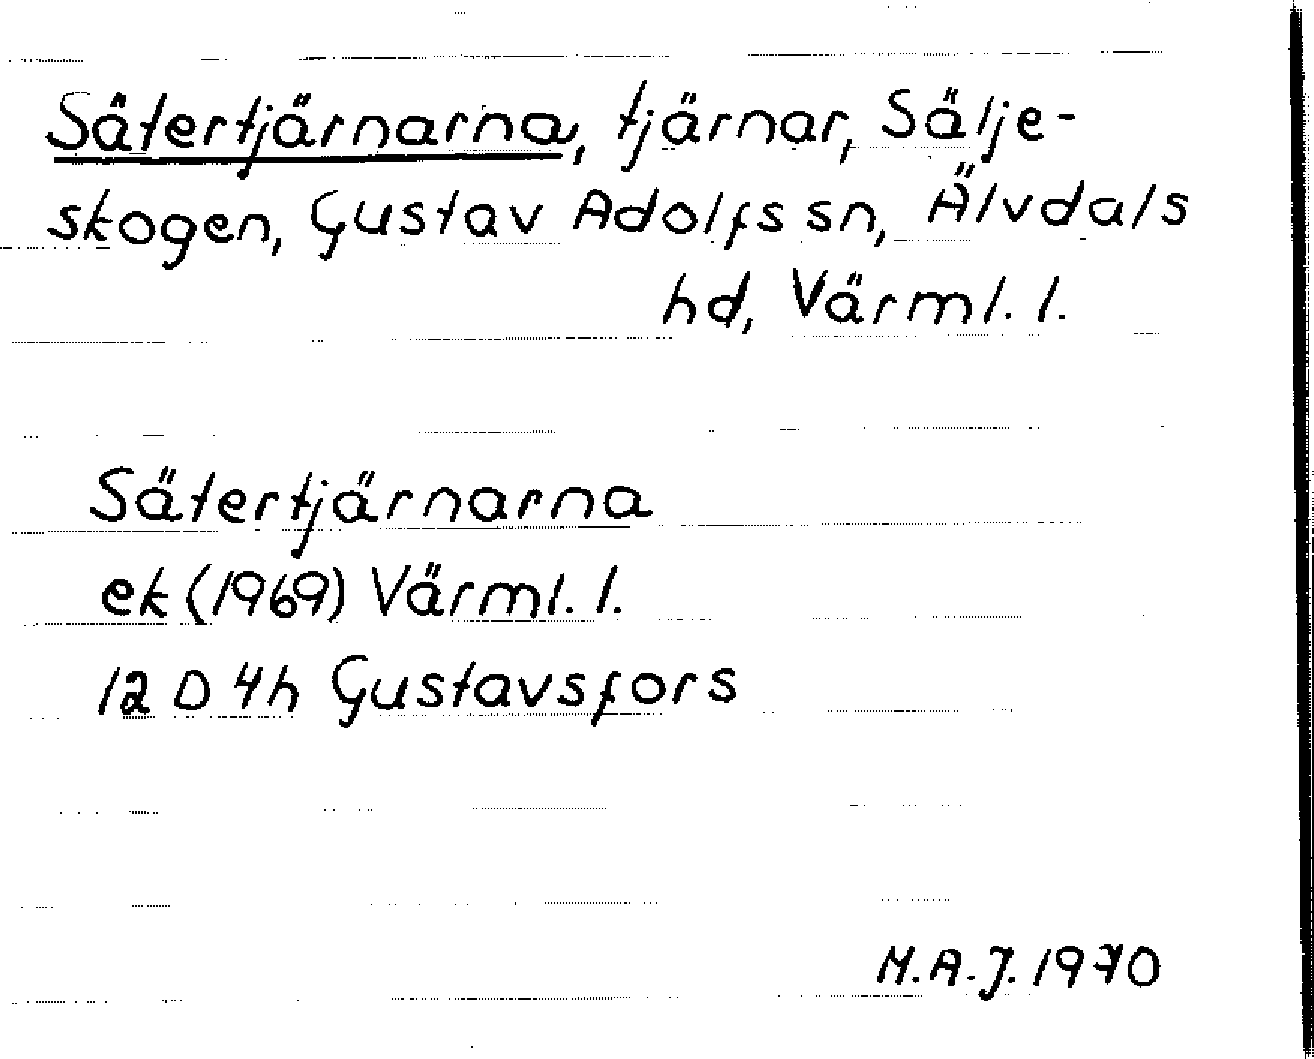 Sätertjärnarna, tjärnar, Sälje-
skogen, Gustav Adolfs sn, Älvdals
hd, Värml. l.
Sätertjärnarna
ek (1969) Värml. l.
12 D 4h Gustavsfors
M.A.J. 1970